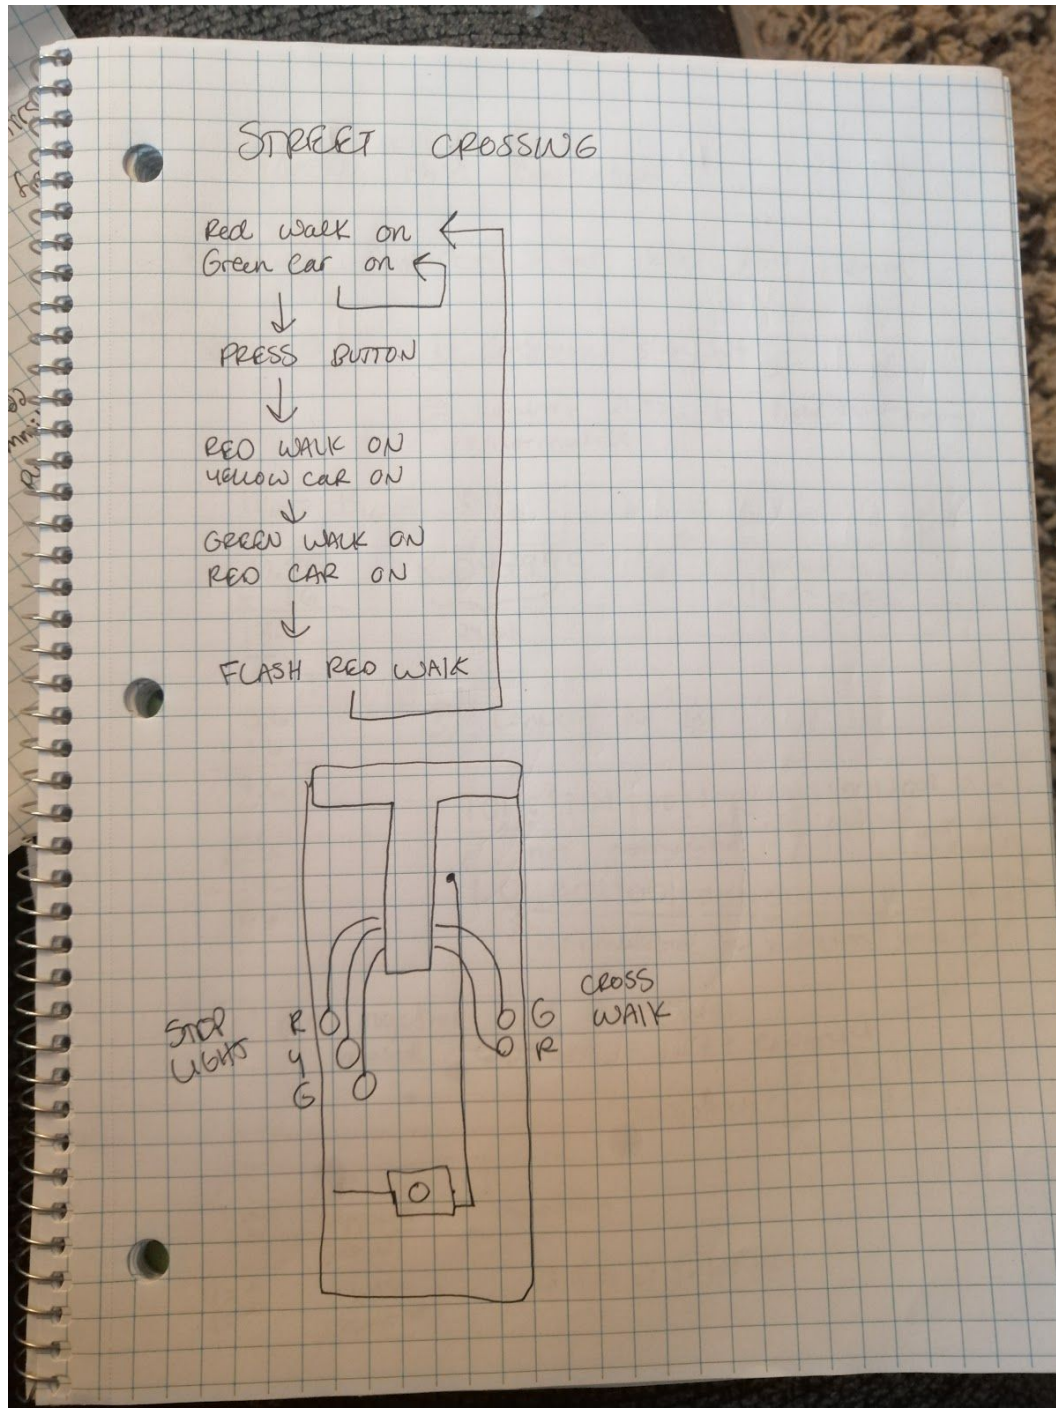 STREET CROSSING
Red Walk on
Green Car on
PRESS BUTTON
RED WALK ON
YELLOW CAR ON
GREEN WALK ON
RED CAR ON
FLASH RED WALK
STOP
LIGHT
R
Y
G
CROSS
WALK
G
R